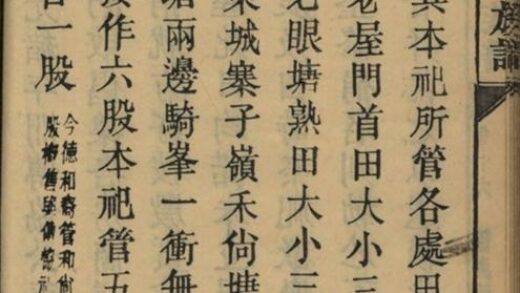 族譜
其本祀所管各處田
老屋門首田大小三
七眼塘熟田大小三
東城寨子嶺禾尙塘
塘兩邊騎峯一衝無
按作六股本祀管五
一股
今德和裔管和尙
股